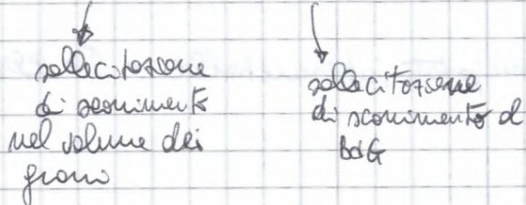 sollecitazione
di scorrimento
nel volume dei
grani
sollecitazione
di scorrimento al
BdG